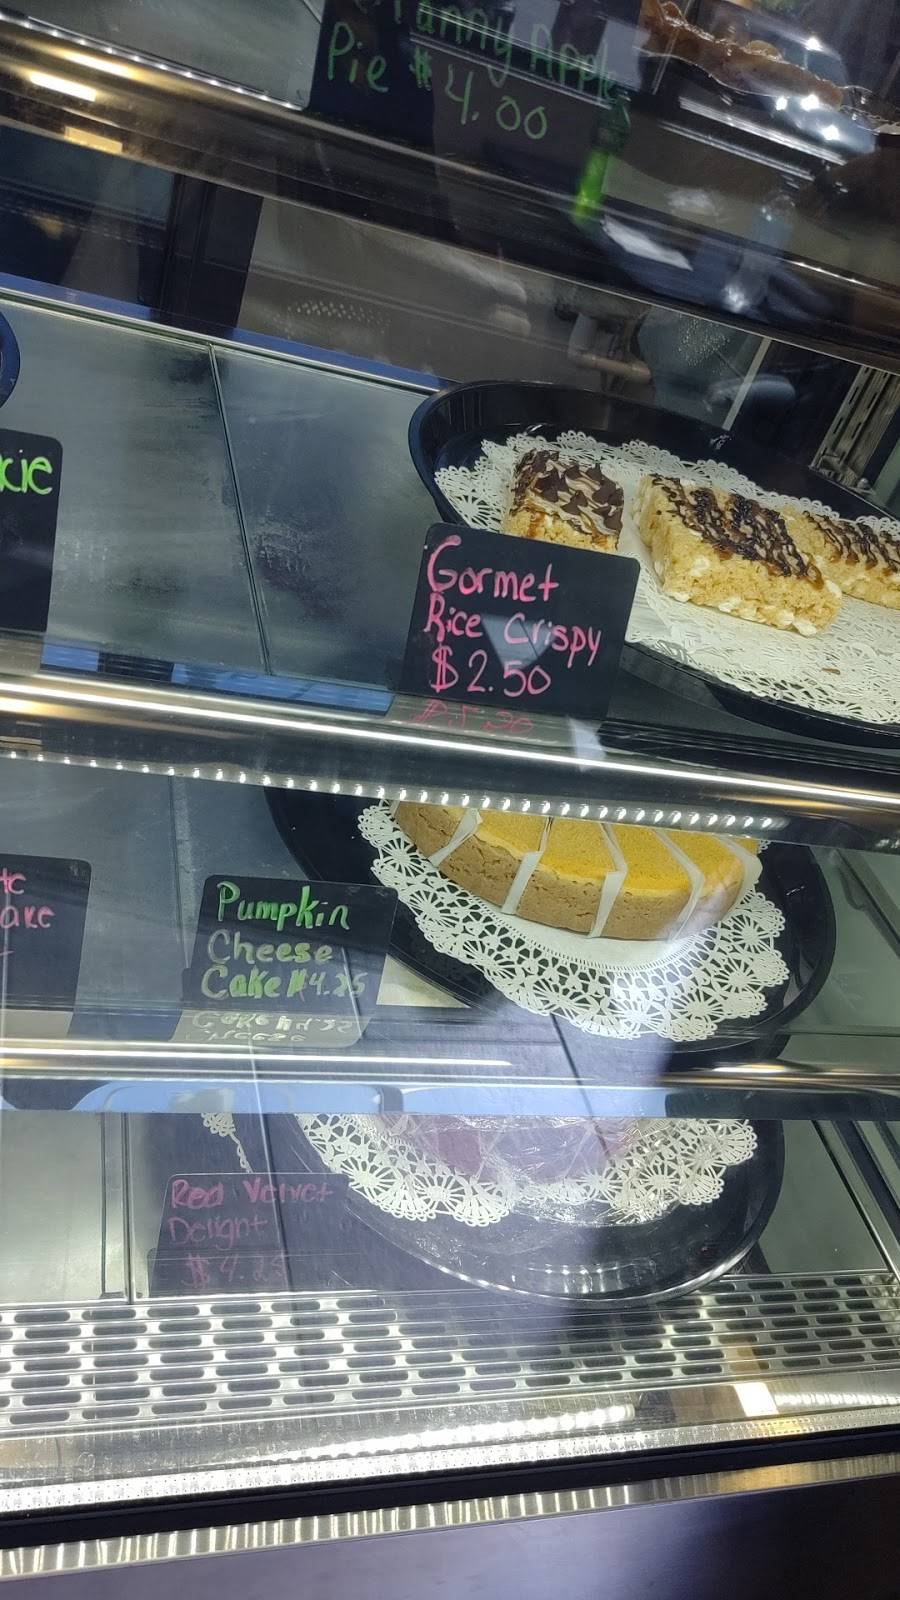 Apple
Pie $4.00
cie
Gormet
Rice Crispy
$2.50
Pumpkin
Cheese
Cake $4.25
ake
Red Velvet
Delight
$4.25